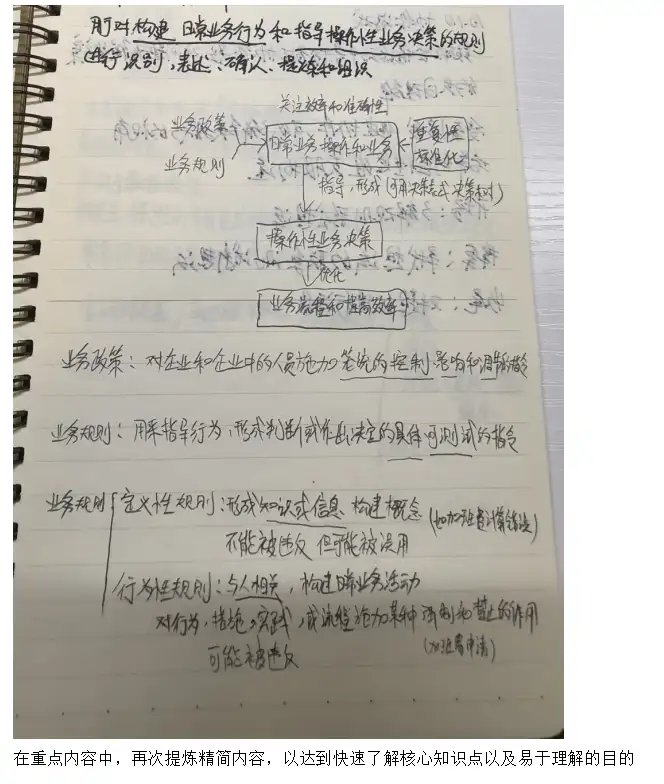 用对构建 日常业务行为和指导操作性业务决策的规则
进行识别、表述、确认、提炼和组织
关注效率和准确性
业务政策
业务规则
日常业务操作和业务
重复性
标准化
指导、形成(可用决策表或决策树)
操作性业务决策
优化
业务流程和提高效率
业务政策：对企业和企业中的人员施加笼统的控制、影响和调节的指令
业务规则：用来指导行为、形成判断或作出决定的具体可测试的指令
业务规则
定义性规则：形成知识或信息 构建概念 (如加班费计算错误)
不能被违反 但可能被误用
行为性规则：与人相关，构建日常业务活动
对行为，措施，实践，或流程施加某种 强制和禁止的作用
可能被违反 (加班需申请)
在重点内容中，再次提炼精简内容，以达到快速了解核心知识点以及易于理解的目的